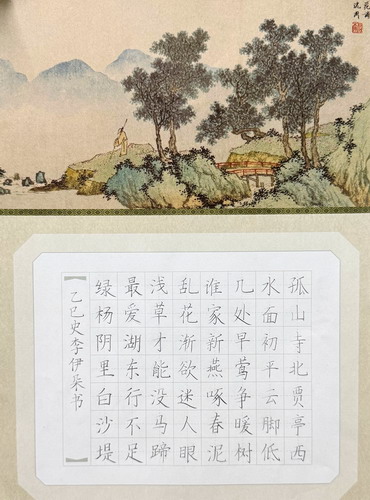 沈周
孤山寺北贾亭西
水面初平云脚低
几处早莺争暖树
谁家新燕啄春泥
乱花渐欲迷人眼
浅草才能没马蹄
最爱湖东行不足
绿杨阴里白沙堤
乙巳史李伊书